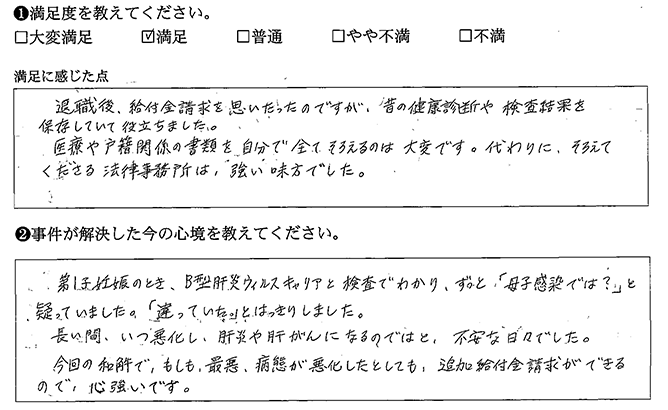 ❶満足度を教えてください。
□大変満足 ☑満足 □普通 □やや不満 □不満
満足に感じた点
退職後、給付金請求を思いたったのですが、昔の健康診断や検査結果を
保存していて役立ちました。
医療や戸籍関係の書類を自分で全てそろえるのは大変です。代わりに、そろえて
くださる法律事務所は、強い味方でした。
❷事件が解決した今の心境を教えてください。
第1子妊娠のとき、B型肝炎ウィルスキャリアと検査でわかり、ずっと「母子感染では？」と
疑っていました。「違っていた。」とはっきりしました。
長い間、いつ悪化し、肝炎や肝がんになるのではと、不安な日々でした。
今回の和解で、もしも、最悪、病態が悪化したとしても、追加給付金請求ができる
ので、心強いです。